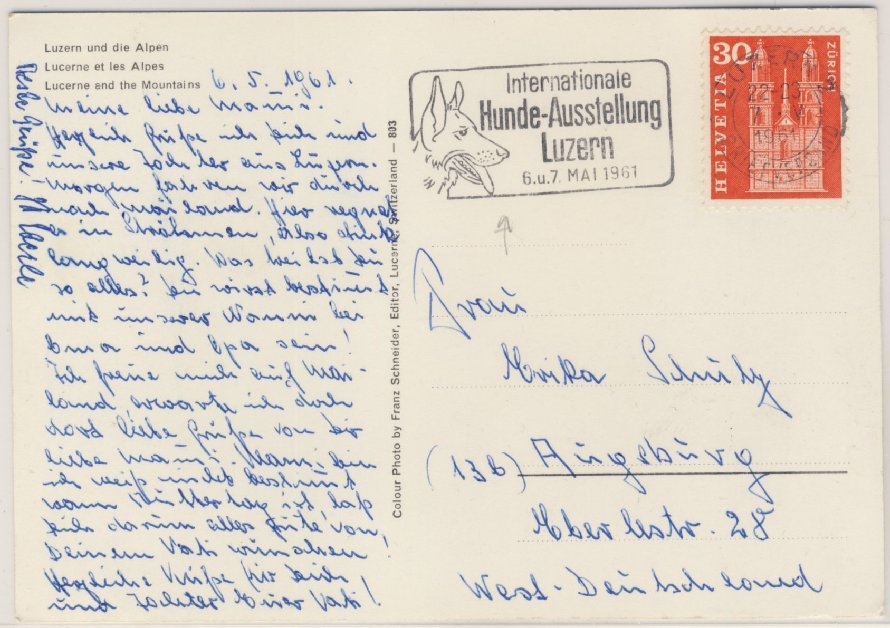 Luzern und die Alpen
Lucerne et les Alpes
Lucerne and the Mountains
6. 5. 1961.
Meine liebe Mausi.
Herzlich Grüße ich dich und
unsere Tochter aus Luzern.
Morgen fahren wir durch
nach Mailand. Hier regnet
es in Strömen, also
langweilig. Was treibst du
so alles? Du wirst bestimmt
mit unserer bei
Oma und Opa sein!
Ich freue mich auf Mai-
land, erwarte ich doch
dort liebe Grüße von dir
liebe Mausi. Mausi, bin
ich weiß nicht bestimmt
wann Muttertag ist, laß
dich darum alles Gute von
Deinem Vati wünschen!
Herzliche Grüße für dich
und Tochter Euer Vati!
Grüße!
Colour Photo by Franz Schneider, Editor, Lucerne, Switzerland — 803
Internationale
Hunde-Ausstellung
Luzern
6.u.7. MAI 1961
30
HELVETIA
ZÜRICH
LUZERN
1961
Frau
Erika Schulz
(13b) Augsburg
Oberlestr. 28
West-Deutschland